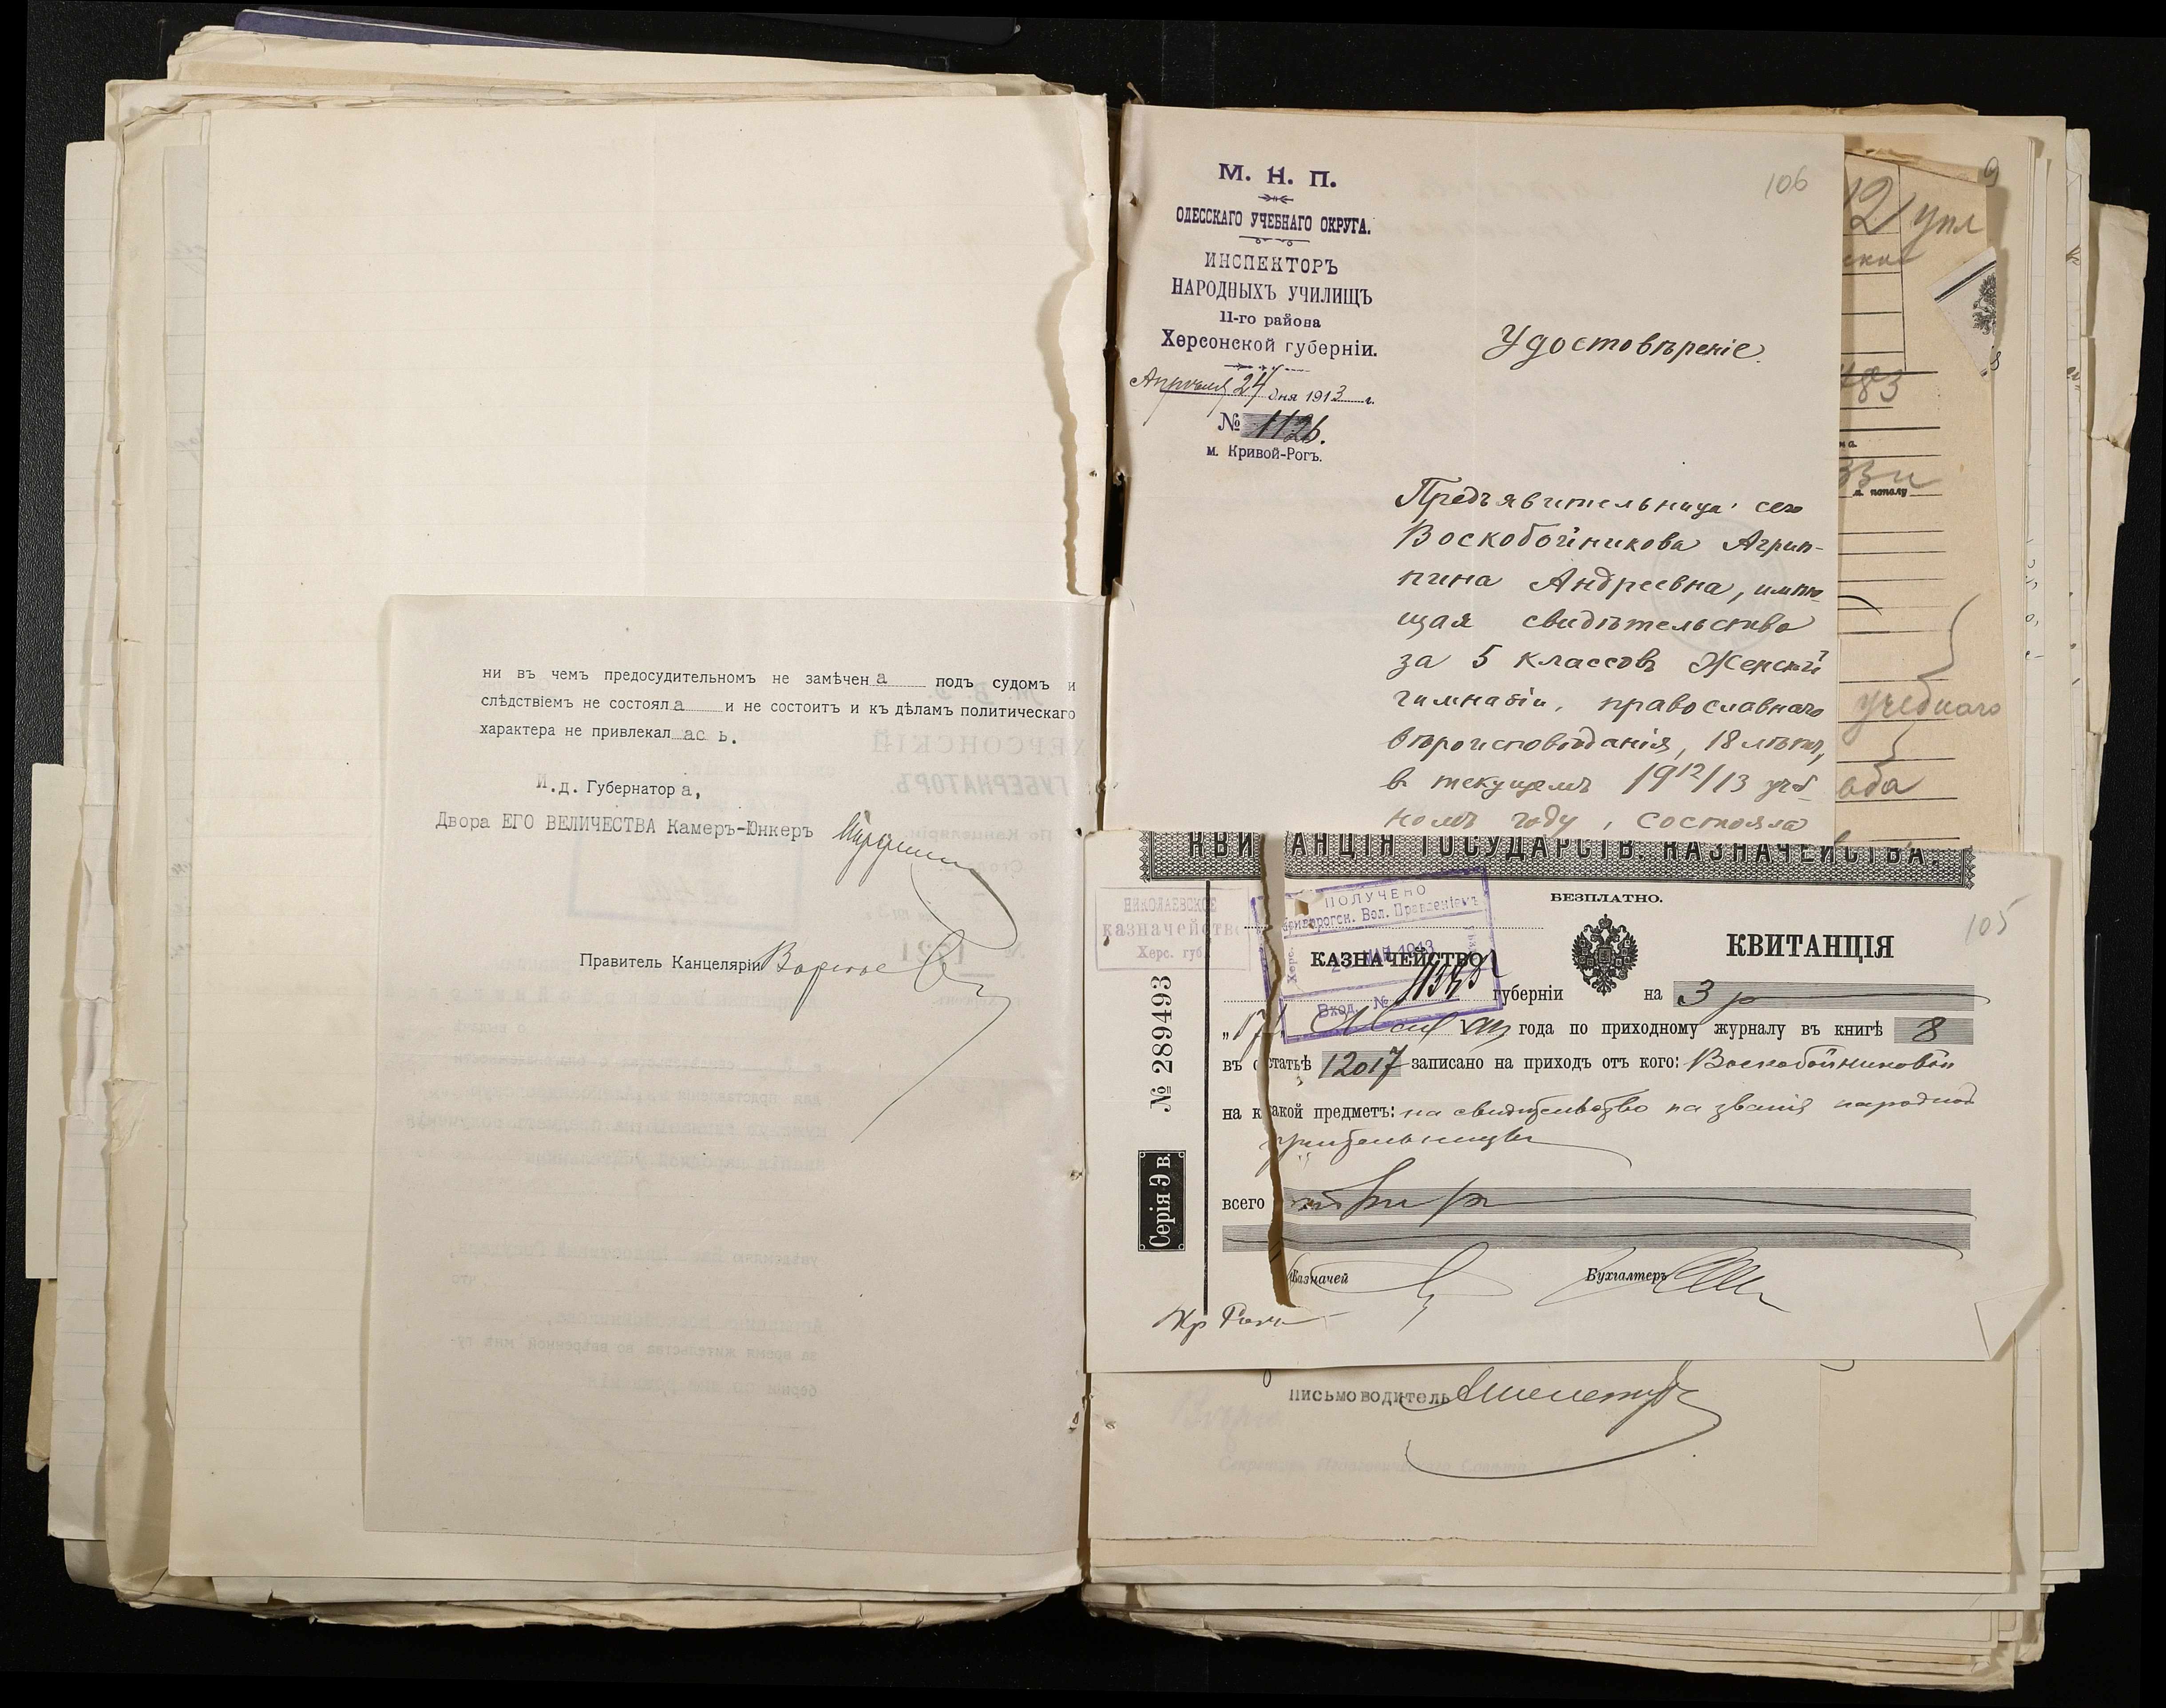 ни въ чемъ предосудительномъ не замѣчен а подъ судомъ и
слѣдствіемъ не состоял а и не состоитъ и къ дѣламъ политическаго
характера не привлекал ас ь.
И.д. Губернатора,
Двора ЕГО ВЕЛИЧЕСТВА Камеръ-Юнкеръ
Правитель Канцеляріи
М. Н. П.
ОДЕССКАГО УЧЕБНАГО ОКРУГА.
ИНСПЕКТОРЪ
НАРОДНЫХЪ УЧИЛИЩЪ
11-го района
Херсонской губерніи.
Апрѣля 24 дня 1913 г.
№ 1126.
м. Кривой-Рогъ.
106
Удостовѣреніе.
Предъявительница сего
Воскобойникова Агрип-
пина Андреевна, имѣю-
щая свидѣтельство
за 5 классовъ Женской
гимназіи, православнаго
вѣроисповѣданія, 18 лѣтъ,
в текущемъ 1912/13 учеб
номъ году, состояла
12
483
учебнаго
КВИТАНЦІЯ ГОСУДАРСТВ. КАЗНАЧЕЙСТВА.
БЕЗПЛАТНО.
105
НИКОЛАЕВСКОЕ
казначейство
Херс. губ.
ПОЛУЧЕНО
Криворогск. Вол. Правленіемъ
МАЯ 1913
Вход. №
КАЗНАЧЕЙСТВО
КВИТАНЦІЯ
губерніи на 3 р
„17„ года по приходному журналу въ книгѣ 8
въ статьѣ 12017 записано на приходъ отъ кого: Воскобойниковой
на какой предметъ: на свидѣтельство на званія народной
учительницы
всего три р
Казначей
Бухгалтеръ
№ 289493
Серія Э в.
Кр Рогъ
Письмоводитель